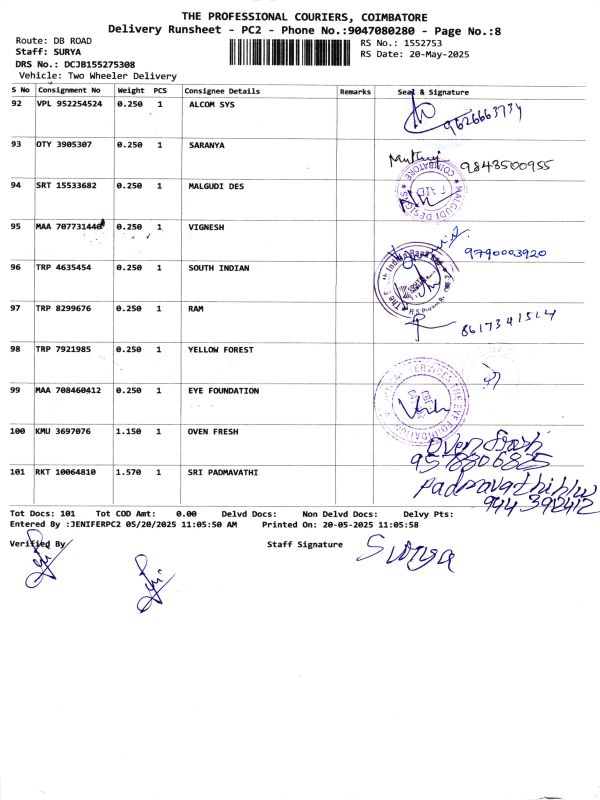 THE PROFESSIONAL COURIERS, COIMBATORE
Delivery Runsheet - PC2 - Phone No.:9047080280 - Page No.:8
Route: DB ROAD
RS No.: 1552753
Staff: SURYA
RS Date: 20-May-2025
DRS No.: DCJB155275308
Vehicle: Two Wheeler Delivery
S No Consignment No Weight PCS Consignee Details Remarks Seal & Signature
92 VPL 952254524 0.250 1 ALCOM SYS
9626663734
93 OTY 3905307 0.250 1 SARANYA
9843500955
94 SRT 15533682 0.250 1 MALGUDI DES
95 MAA 707731440 0.250 1 VIGNESH
9790003920
96 TRP 4635454 0.250 1 SOUTH INDIAN
97 TRP 8299676 0.250 1 RAM
98 TRP 7921985 0.250 1 YELLOW FOREST
99 MAA 708460412 0.250 1 EYE FOUNDATION
100 KMU 3697076 1.150 1 OVEN FRESH
Oven fresh
101 RKT 10064810 1.570 1 SRI PADMAVATHI
Tot Docs: 101 Tot COD Amt: 0.00 Delvd Docs: Non Delvd Docs: Delvy Pts:
Entered By :JENIFERPC2 05/20/2025 11:05:50 AM Printed On: 20-05-2025 11:05:58
Verified By Staff Signature Surya